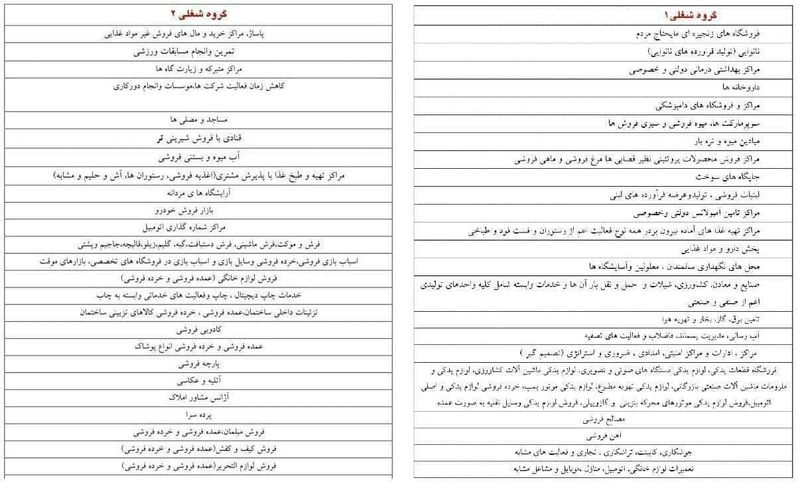 گروه شغلی ۱
فروشگاه های زنجیره ای مایحتاج مردم
نانوایی (تولید فرآورده های نانوایی)
مراکز بهداشتی درمانی دولتی و خصوصی
داروخانه ها
مراکز و فروشگاه های دامپزشکی
سوپرمارکت ها، میوه فروشی و سبزی فروش ها
میادین میوه و تره بار
مراکز فروش محصولات پروتئینی نظیر قصابی ها مرغ فروشی و ماهی فروشی
جایگاه های سوخت
لبنیات فروشی ، تولیدوعرضه فرآورده های لبنی
مراکز تامین آمبولانس دولتی وخصوصی
مراکز تهیه غذا های آماده بیرون بردر همه نوع فعالیت اعم از رستوران و فست فود و طباخی
پخش دارو و مواد غذایی
محل های نگهداری سالمندان ، معلولین وآسایشگاه ها
صنایع و معادن، کشاورزی، شیلات و حمل و نقل بار آن ها و خدمات وابسته شامل کلیه واحدهای تولیدی
اعم از صنفی و صنعتی
تامین برق، گاز، بخار و تهویه هوا
آب رسانی، مدیریت پسماند، فاضلاب و فعالیت های تصفیه
مراکز ، ادارات و مراکز امنیتی، امدادی ، ضروری و استراتژی (تصمیم گیر )
فروشگاه قطعات یدکی، لوازم یدکی دستگاه های صوتی و تصویری، لوازم یدکی ماشین آلات کشاورزی، لوازم یدکی و
ملزومات ماشین آلات صنعتی بازرگانی، لوازم یدکی تهویه مطبوع، لوازم یدکی موتور پمپ، خرده فروشی لوازم یدکی و اصلی
اتومبیل،فروش لوازم یدکی موتورهای محرکه بنزینی و گازوییلی، فروش لوازم یدکی وسایل نقلیه به صورت عمده
مصالح فروشی
آهن فروشی
جوشکاری، کابینت، تراشکاری ، نجاری و فعالیت های مشابه
تعمیرات لوازم خانگی، اتومبیل، منازل ،موبایل و مشاغل مشابه
گروه شغلی ۲
پاساژ، مراکز خرید و مال های فروش غیر مواد غذایی
تمرین وانجام مسابقات ورزشی
مراکز متبرکه و زیارت گاه ها
کاهش زمان فعالیت شرکت ها،موسسات وانجام دورکاری
مساجد و مصلی ها
قنادی با فروش شیرینی تر
آب میوه و بستنی فروشی
مراکز تهیه و طبخ غذا با پذیرش مشتری(اغذیه فروشی، رستوران ها، آش و حلیم و مشابه)
آرایشگاه ها ی مردانه
بازار فروش خودرو
مراکز شماره گذاری اتومبیل
فرش و موکت،فرش ماشینی، فرش دستبافت،گبه، گلیم،زیلو،قالیچه،جاجیم وپشتی
اسباب بازی فروشی،خرده فروشی وسایل بازی و اسباب بازی در فروشگاه های تخصصی، بازارهای موقت
فروش لوازم خانگی (عمده فروشی و خرده فروشی)
خدمات چاپ دیجیتال ، چاپ وفعالیت های خدماتی وابسته به چاپ
تزئینات داخلی ساختمان،عمده فروشی ، خرده فروشی کالاهای تزیینی ساختمان
کادویی فروشی
عمده فروشی و خرده فروشی انواع پوشاک
پارچه فروشی
آتلیه و عکاسی
آژانس مشاور املاک
پرده سرا
فروش مبلمان،عمده فروشی و خرده فروشی
فروش کیف و کفش(عمده فروشی و خرده فروشی)
فروش لوازم التحریر(عمده فروشی و خرده فروشی)